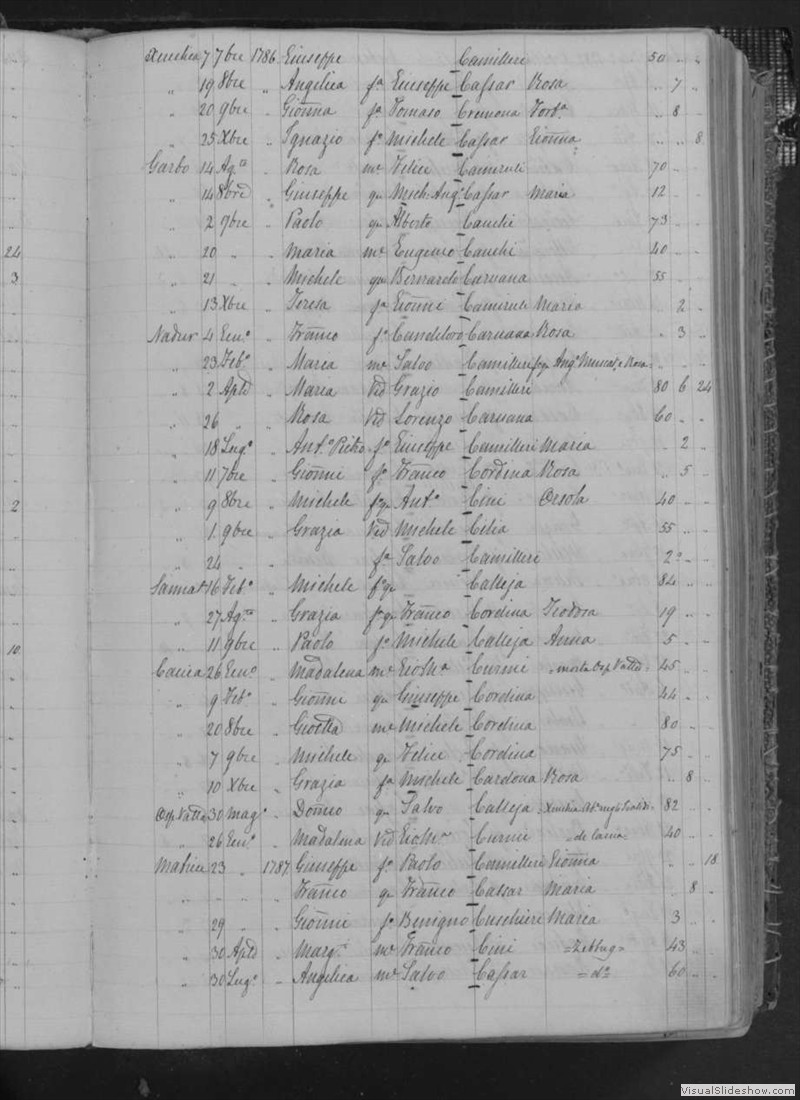 Xeuchia 7 7bre 1786 Giuseppe Camilleri 50 " "
" 19 8bre " Angelica fa Giuseppe Cassar Rosa " 7 "
" 20 9bre " Gionna fa Tomaso Cremona Vorta " 8 "
" 25 Xbre " Ignazio fo Michele Cassar Gionna " " 8
Garbo 14 Agto " Rosa me Felice Camiruli 70 " "
" 14 8bre " Giuseppe qu Mich. Ango Cassar Maria 12
" 2 9bre " Paolo qu Alberto Cauchi 73
24 " 20 " " Maria me Eugenio Cauchi 40
3 " 21 " " Michele qu Bernardo Caruana 55
" 13 Xbre " Teresa fa Gionni Camiruli Maria " 2 "
Nadur 4 Geno " Franco fo Candeloro Caruana Rosa " 3 "
" 23 Febo " Maria me Salvo Camilleri Ango Muscat e Rosa
" 2 Aple " Maria Ved Grazio Camilleri 80 6 24
" 26 " " Rosa Ved Lorenzo Caruana 60 " "
" 18 Lugo " Anto Pietro fo Giuseppe Camilleri Maria " 2 "
" 11 7bre " Gionni fo Franco Cordina Rosa " 5 "
2 " 9 8bre " Michele fo qu Anto Cini Orsola 40 " "
" 1 9bre " Grazia Ved Michele Celia 55 " "
" 24 " " fa Salvo Camilleri 2 " "
Sannat 16 Febo " Michele fo qu Calleja 84 " "
" 27 Agto " Grazia fa qu Franco Cordina Teodora 19 " "
10 " 11 9bre " Paolo fo Michele Calleja Anna 5 " "
Caccia 26 Geno " Madalena me Curmi morta Osp Vatta 45 " "
" 9 Febo " Gionni qu Giuseppe Cordina 44 " "
" 20 8bre " me Michele Cordina 80 " "
" 7 9bre " Michele qu Felice Cordina 75 " "
" 10 Xbre " Grazia fa Michele Cardona Rosa " 8 "
Osp Vatta 30 Mago " Domco qu Salvo Calleja Xeuchia 82 " "
" 26 Geno " Madalena Ved Curmi 40 " "
Matrice 23 " 1787 Giuseppe fo Paolo Cammilleri Gionna " " 18
" " " " Franco qu Franco Cassar Maria " 8 "
" 29 " " Gionni fo Benigno Cuschieri Maria 3 " "
" 30 Aple " Marga me Franco Cini = Zebbug = 43 " "
" 30 Lugo " Angelica me Salvo Cassar = do = 60 " "
VisualSlideshow.com